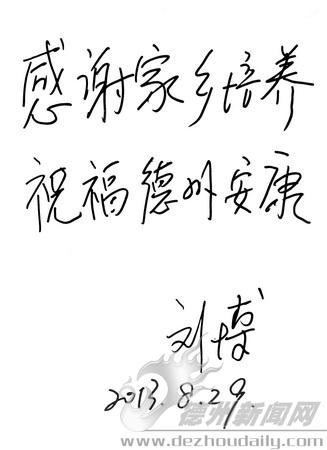 感谢家乡培养
祝福德州安康
刘博
2013.8.29.
德州新闻网
www.dezhoudaily.com